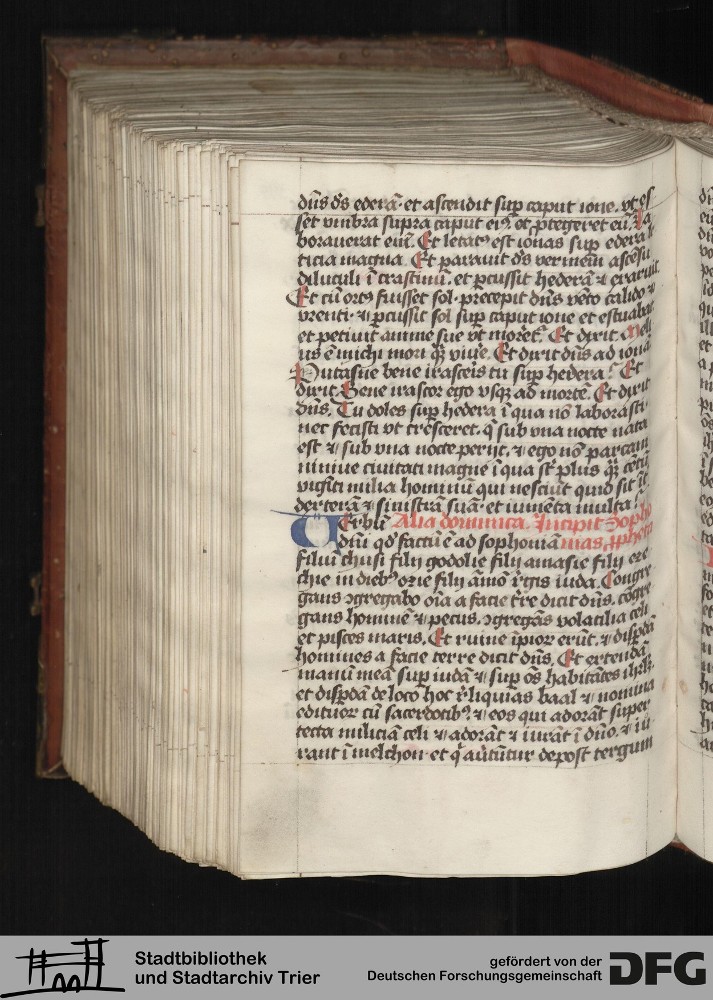 dñs ds ederā· et ascendit sup caput ione. vt es
set vmbra supra caput eiꝰ. et ꝓtegeret eū. la
borauerat enī. Et letatꝰ est ionas sup ederā le
ticia magna. Et parauit ds vermem ascēsu
diluculi ī crastinū. et pcussit hederā ⁊ exaruit
Et cū ortꝰ fuisset sol· precepit dñs vēto calido ⁊
vrenti· ⁊ pcussit sol sup caput ione et estuabat
et petiuit anime sue vt moreret. Et dixit Meli
us ē michi mori qȝ viuē. Et dixit dñs ad ionā
Putasne bene irasceris tu sup hedera? Et
dixit. Bene irascor ego vsqȝ ad mortē. Et dixit
dñs. Tu doles sup hederā ī qua nō laborasti·
nec fecisti vt cresceret. q̄ sub vna nocte nata
est ⁊ sub vna nocte perijt. ⁊ ego nō parcam
niniue ciuitati magne ī qua st plus qȝ cētū
viginti milia hominū qui nesciūt quid sit īt
dexterā ⁊ sinistrā suā· et iumēta multa?
Verbū Alia dominica. Incipit Sopho
dm̄ qd factū ē ad sophoniā nias ꝓpheta
filiū chusi filij godolie filij amasie filij eze
chie in diebꝰ ozie filij āmō rgis iuda. Congre
gans ꝯgregabo oīa a facie tre dicit dñs. cōgre
gans hominē ⁊ pecus. ꝯgregās volatilia celi
et pisces maris. Et ruine īpior erūt. ⁊ dispdā
homines a facie terre dicit dñs. Et extendā
manū meā sup iudā ⁊ sup os habitātes ihrlȝ
et dispdā de loco hoc rliquias baal ⁊ nomina
edituor cū sacerdotibꝰ ⁊ eos qui adorāt super
tecta miliciā celi ⁊ adorāt ⁊ iurāt ī dño. ⁊ iu
rant ī melchon· et q̄ auūtur de post tergum
Stadtbibliothek
und Stadtarchiv Trier
gefördert von der
Deutschen Forschungsgemeinschaft
DFG